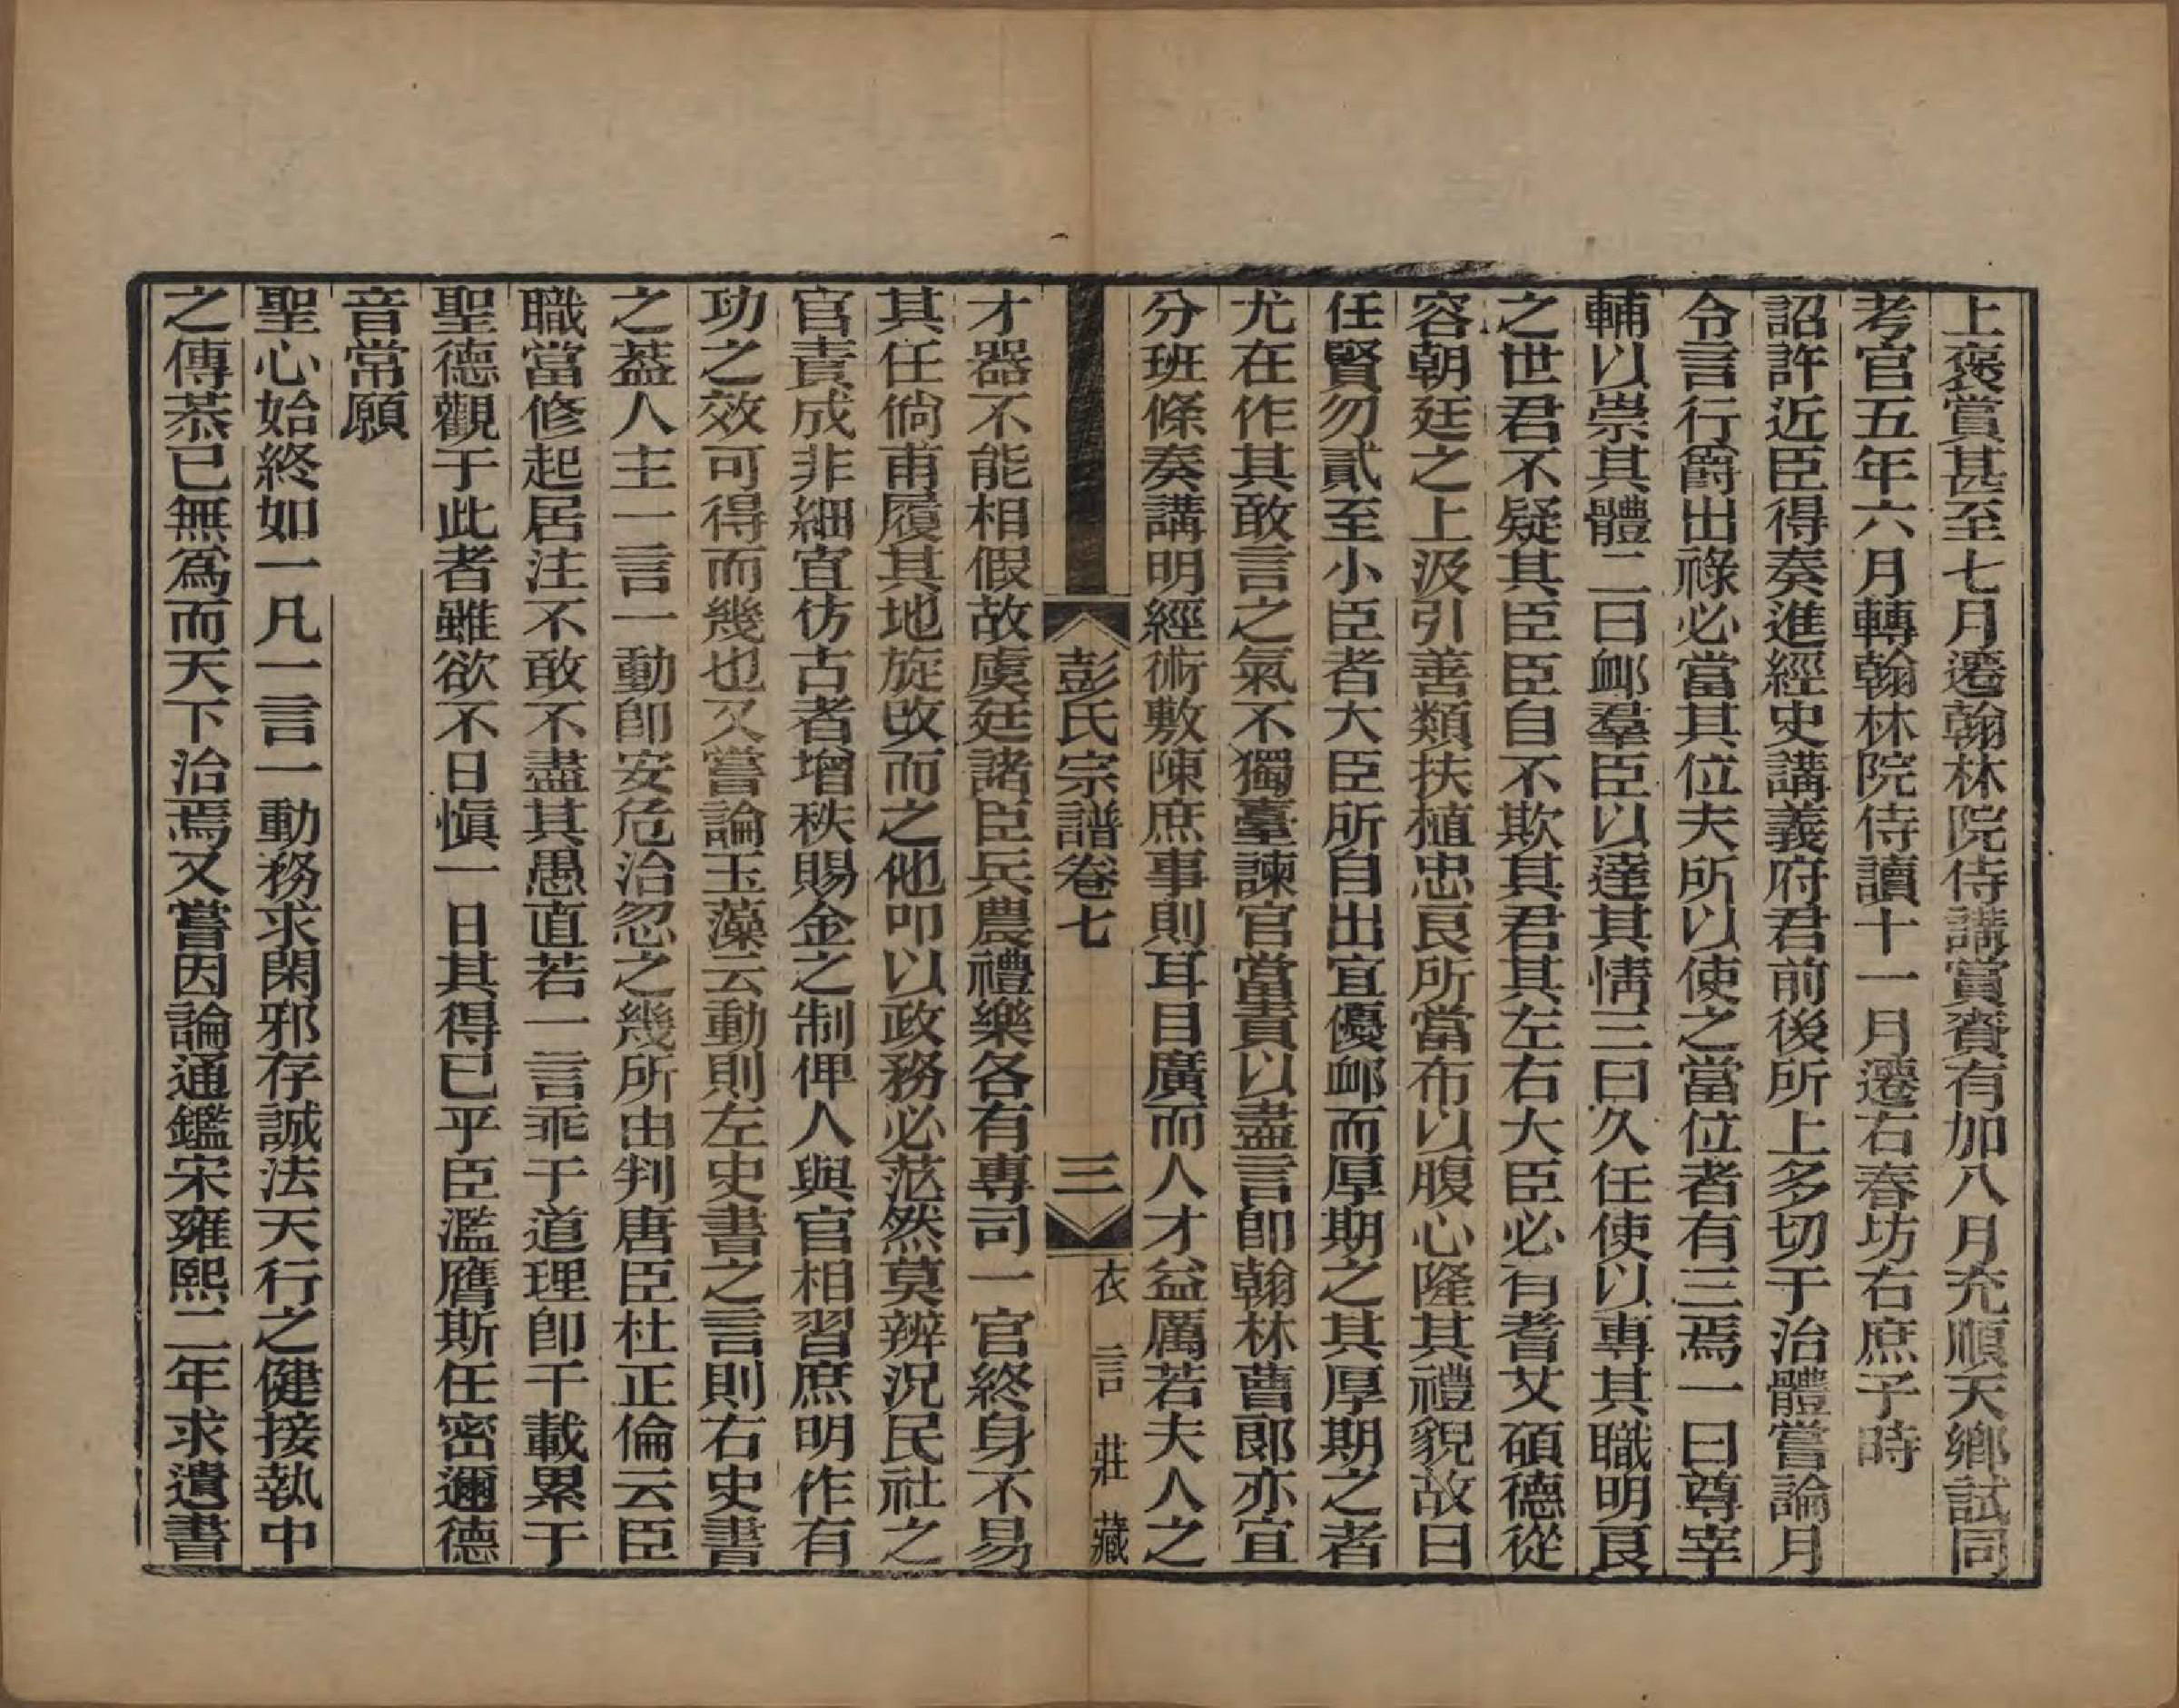 上褒賞甚至七月遷翰林院侍講賞賚有加八月充順天鄉試同
考官五年六月轉翰林院侍讀十一月遷右春坊右庶子時
詔許近臣得奏進經史講義府君前後所上多切于治體嘗論月
令言行爵出祿必當其位夫所以使之當位者有三焉一曰尊宰
輔以崇其體二曰卹羣臣以達其情三曰久任使以專其職明良
之世君不疑其臣臣自不欺其君其左右大臣必有耆艾碩德從
容朝廷之上汲引善類扶植忠良所當布以腹心隆其禮貌故曰
任賢勿貳至小臣者大臣所自出宜優卹而厚期之其厚期之者
尤在作其敢言之氣不獨臺諫官當責以盡言即翰林曹郎亦宜
分班條奏講明經術敷陳庶事則耳目廣而人才益厲若夫人之
彭氏宗譜卷七
三
衣言莊藏
才器不能相假故虞廷諸臣兵農禮樂各有專司一官終身不易
其任倘甫履其地旋改而之他叩以政務必茫然莫辨況民社之
官責成非細宜仿古者增秩賜金之制俾人與官相習庶明作有
功之效可得而幾也又嘗論玉藻云動則左史書之言則右史書
之葢人主一言一動卽安危治忽之幾所由判唐臣杜正倫云臣
職當修起居注不敢不盡其愚直若一言乖于道理卽千載累于
聖德觀于此者雖欲不日愼一日其得已乎臣濫膺斯任密邇德
音常願
聖心始終如一凡一言一動務求閑邪存誠法天行之健接執中
之傳恭已無爲而天下治焉又嘗因論通鑑宋雍熙二年求遺書